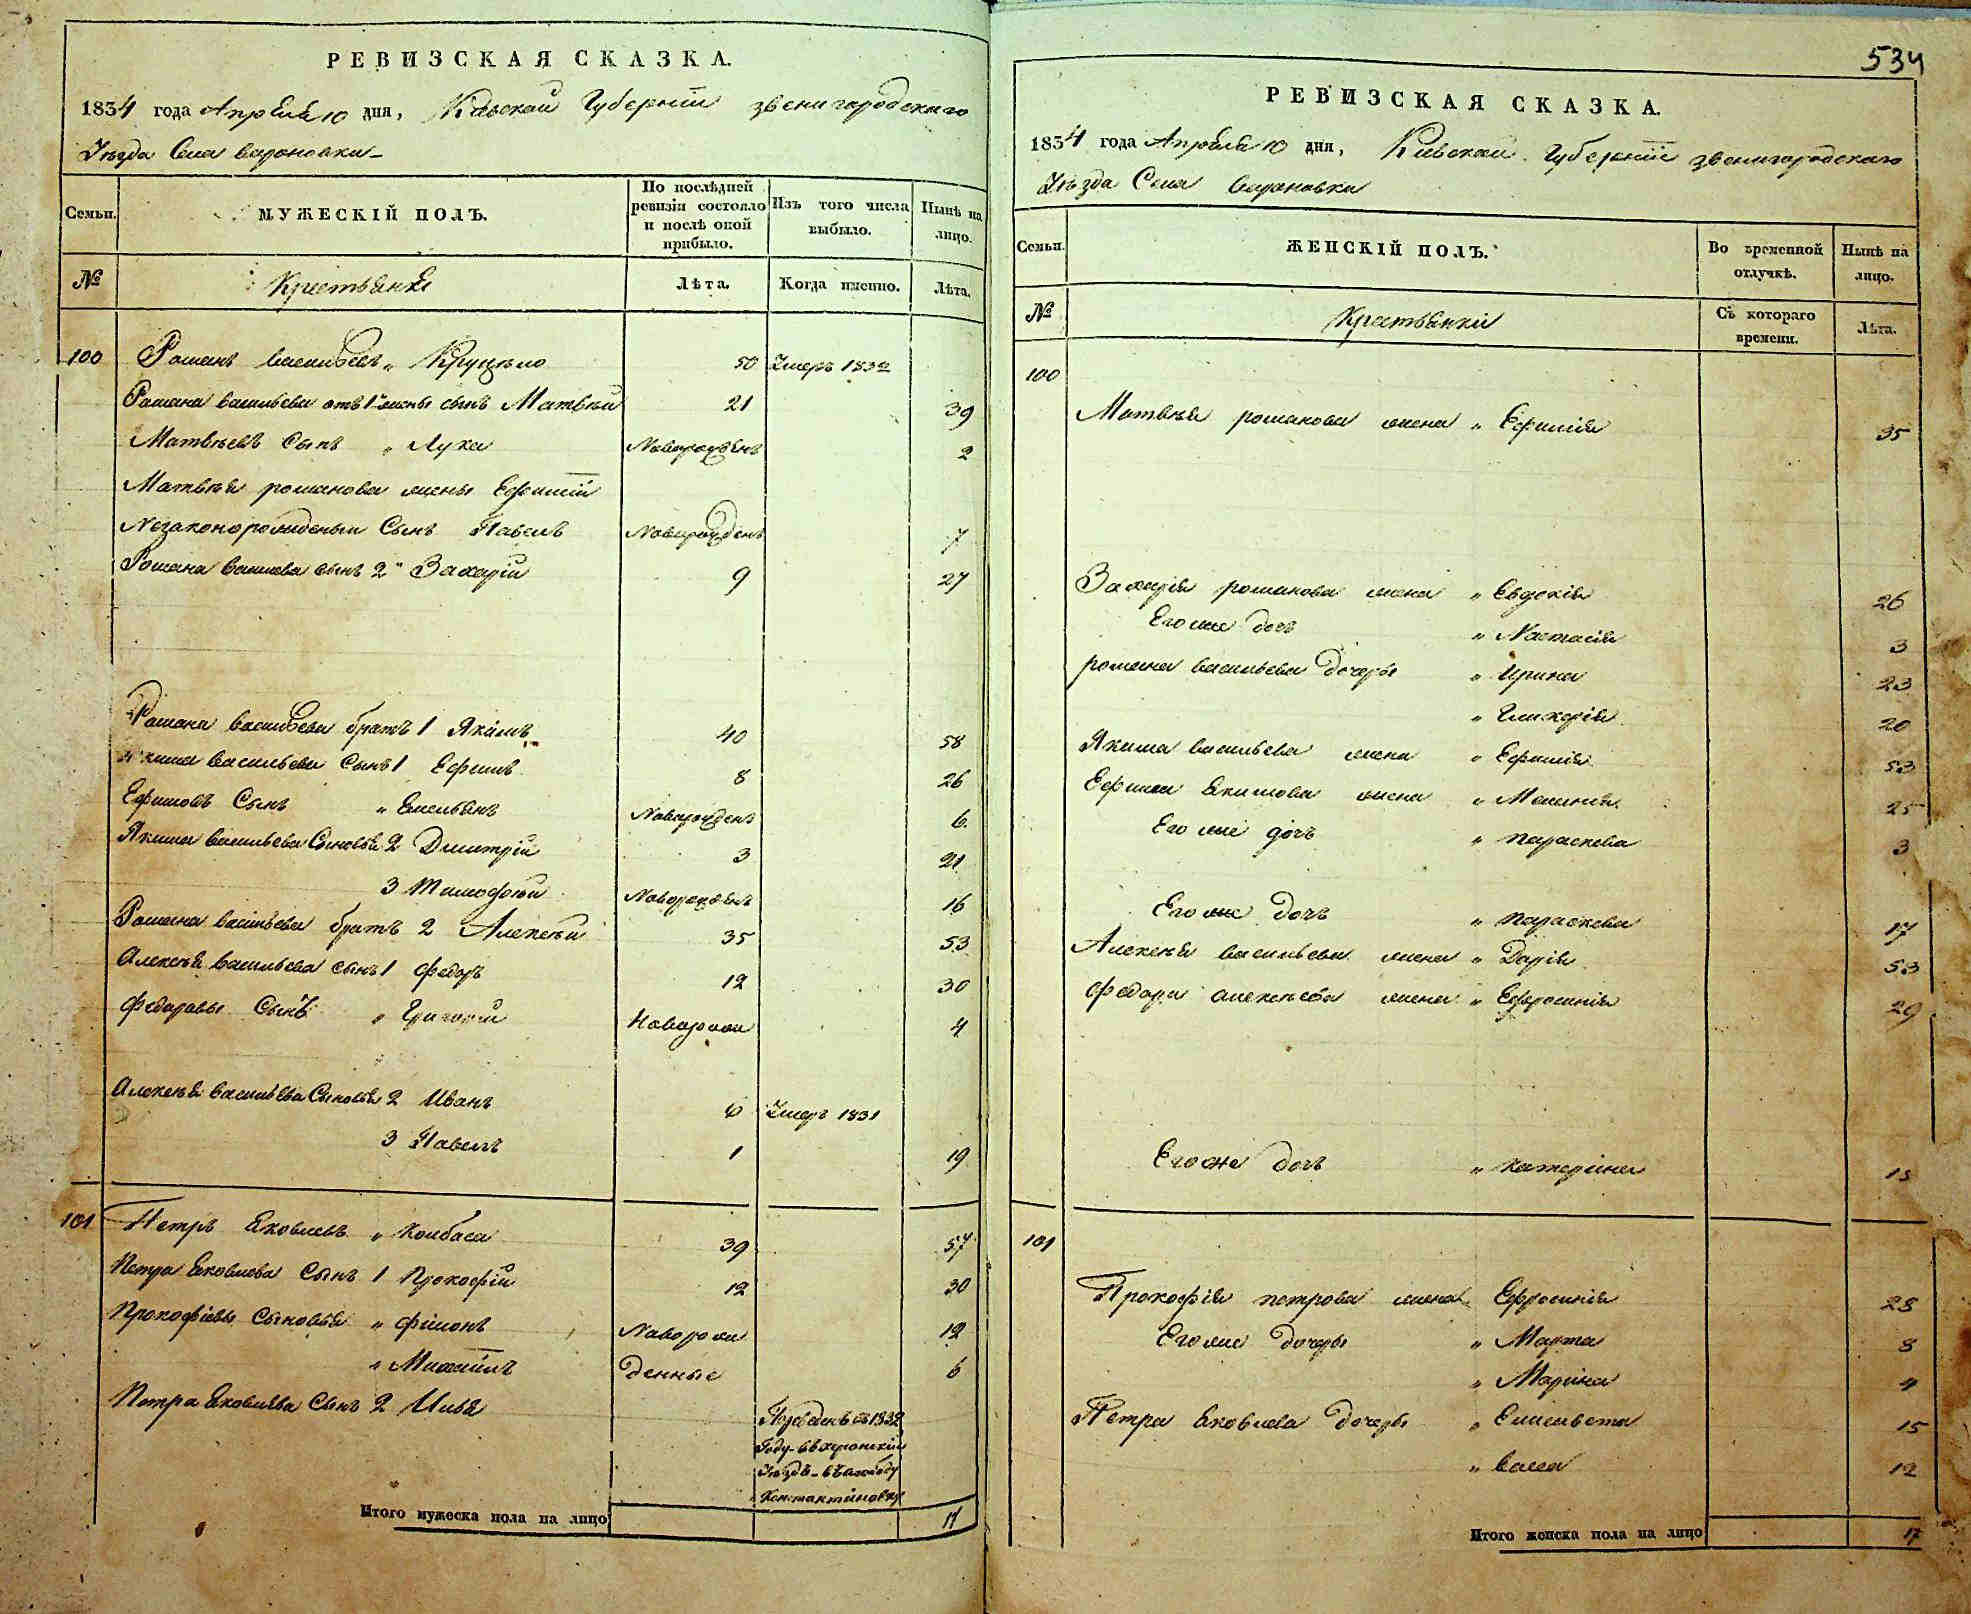 РЕВИЗСКАЯ СКАЗКА.
1834 года Апреля 10 дня, Киевской Губернии звенигородскаго
Уѣзда Села
Семьи.
МУЖЕСКІЙ ПОЛЪ.
По послѣдней ревизіи состояло и послѣ оной прибыло.
Изъ того числа выбыло.
Нынѣ на лицо.
№
Крестьяне
Лѣта.
Когда именно.
Лѣта.
100 Романъ васильевъ „ 50 Умеръ 1832
Романа васильева отъ 1й жены сынъ Матвѣй 21 39
Матвѣевъ Сынъ „ Лука Новорожденъ 2
Матвѣя романова жены Ефимій
Незаконорожденый Сынъ Павелъ Новорожденъ 7
Романа васильева сынъ 2й Захарій 9 27
Романа васильева братъ 1 Якимъ 40 58
Якима васильева Сынъ 1 Ефимъ 8 26
Ефимовъ Сынъ „ Емельянъ Новорожденъ 6
Якима васильева Сыновья 2 Дмитрій 3 21
3 Тимофѣй Новорожденъ 16
Романа васильева братъ 2 Алексѣй 35 53
Алексѣя васильева сынъ 1 Федоръ 12 30
Федоровы Сынъ „ Григорій Новорож 4
Алексѣя васильева Сыновья 2 Иванъ 6 Умеръ 1831
3 Павелъ 1 19
101 Петръ Яковлевъ „ Колбаса 39 57
Петра Яковлева Сынъ 1 Прокофій 12 30
Прокофіевы Сыновья „ Филонъ Новорож 12
„ Михаилъ денные 6
Петра Яковлева Сынъ 2 Илья
Году въ херсонскій
Уѣздъ въ слободу
Константиновку
Итого мужеска пола на лицо 17
534
РЕВИЗСКАЯ СКАЗКА.
1834 года Апреля 10 дня, Киевской Губерніи звенигородскаго
Уѣзда Села
Семьи.
ЖЕНСКІЙ ПОЛЪ.
Во временной отлучкѣ.
Нынѣ на лицо.
№
Крестьянки
Съ котораго времени.
Лѣта.
100
Матвѣя романова жена „ Ефимія 35
Захарія романова жена „ Евдокія 26
Его же дочь „ Настасія 3
романа васильева дочеры „ Ирина 23
„ Гликерія 20
Якима васильева жена „ Ефимія 53
Ефима Якимова жена „ Меланія 25
Его же дочь „ параскева 3
Его же дочь „ параскева 17
Алексѣя васильева жена „ Дарія 53
Федора алексѣева жена „ Ефросинія 29
Его же дочь „ катерина 13
101
Прокофія петрова жена „ Ефросинія 28
Его же дочеры „ Марта 8
„ Марина 4
Петра Яковлева дочеры „ Елисавета 15
„ васса 12
Итого женска пола на лицо 17